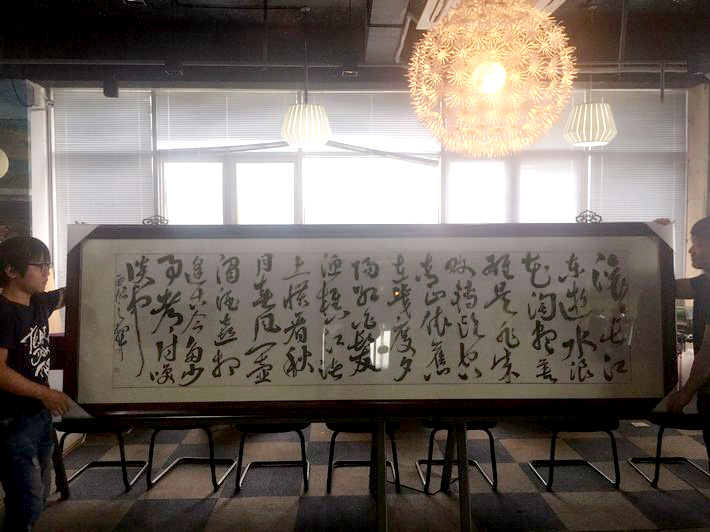 滚滚長江
东逝水浪
花淘尽英
雄是非成
败转头空
青山依舊
在幾度夕
陽紅白髮
渔樵江渚
上惯看秋
月春风一壶
濁酒喜相
逢古今多少
事都付笑
谈中